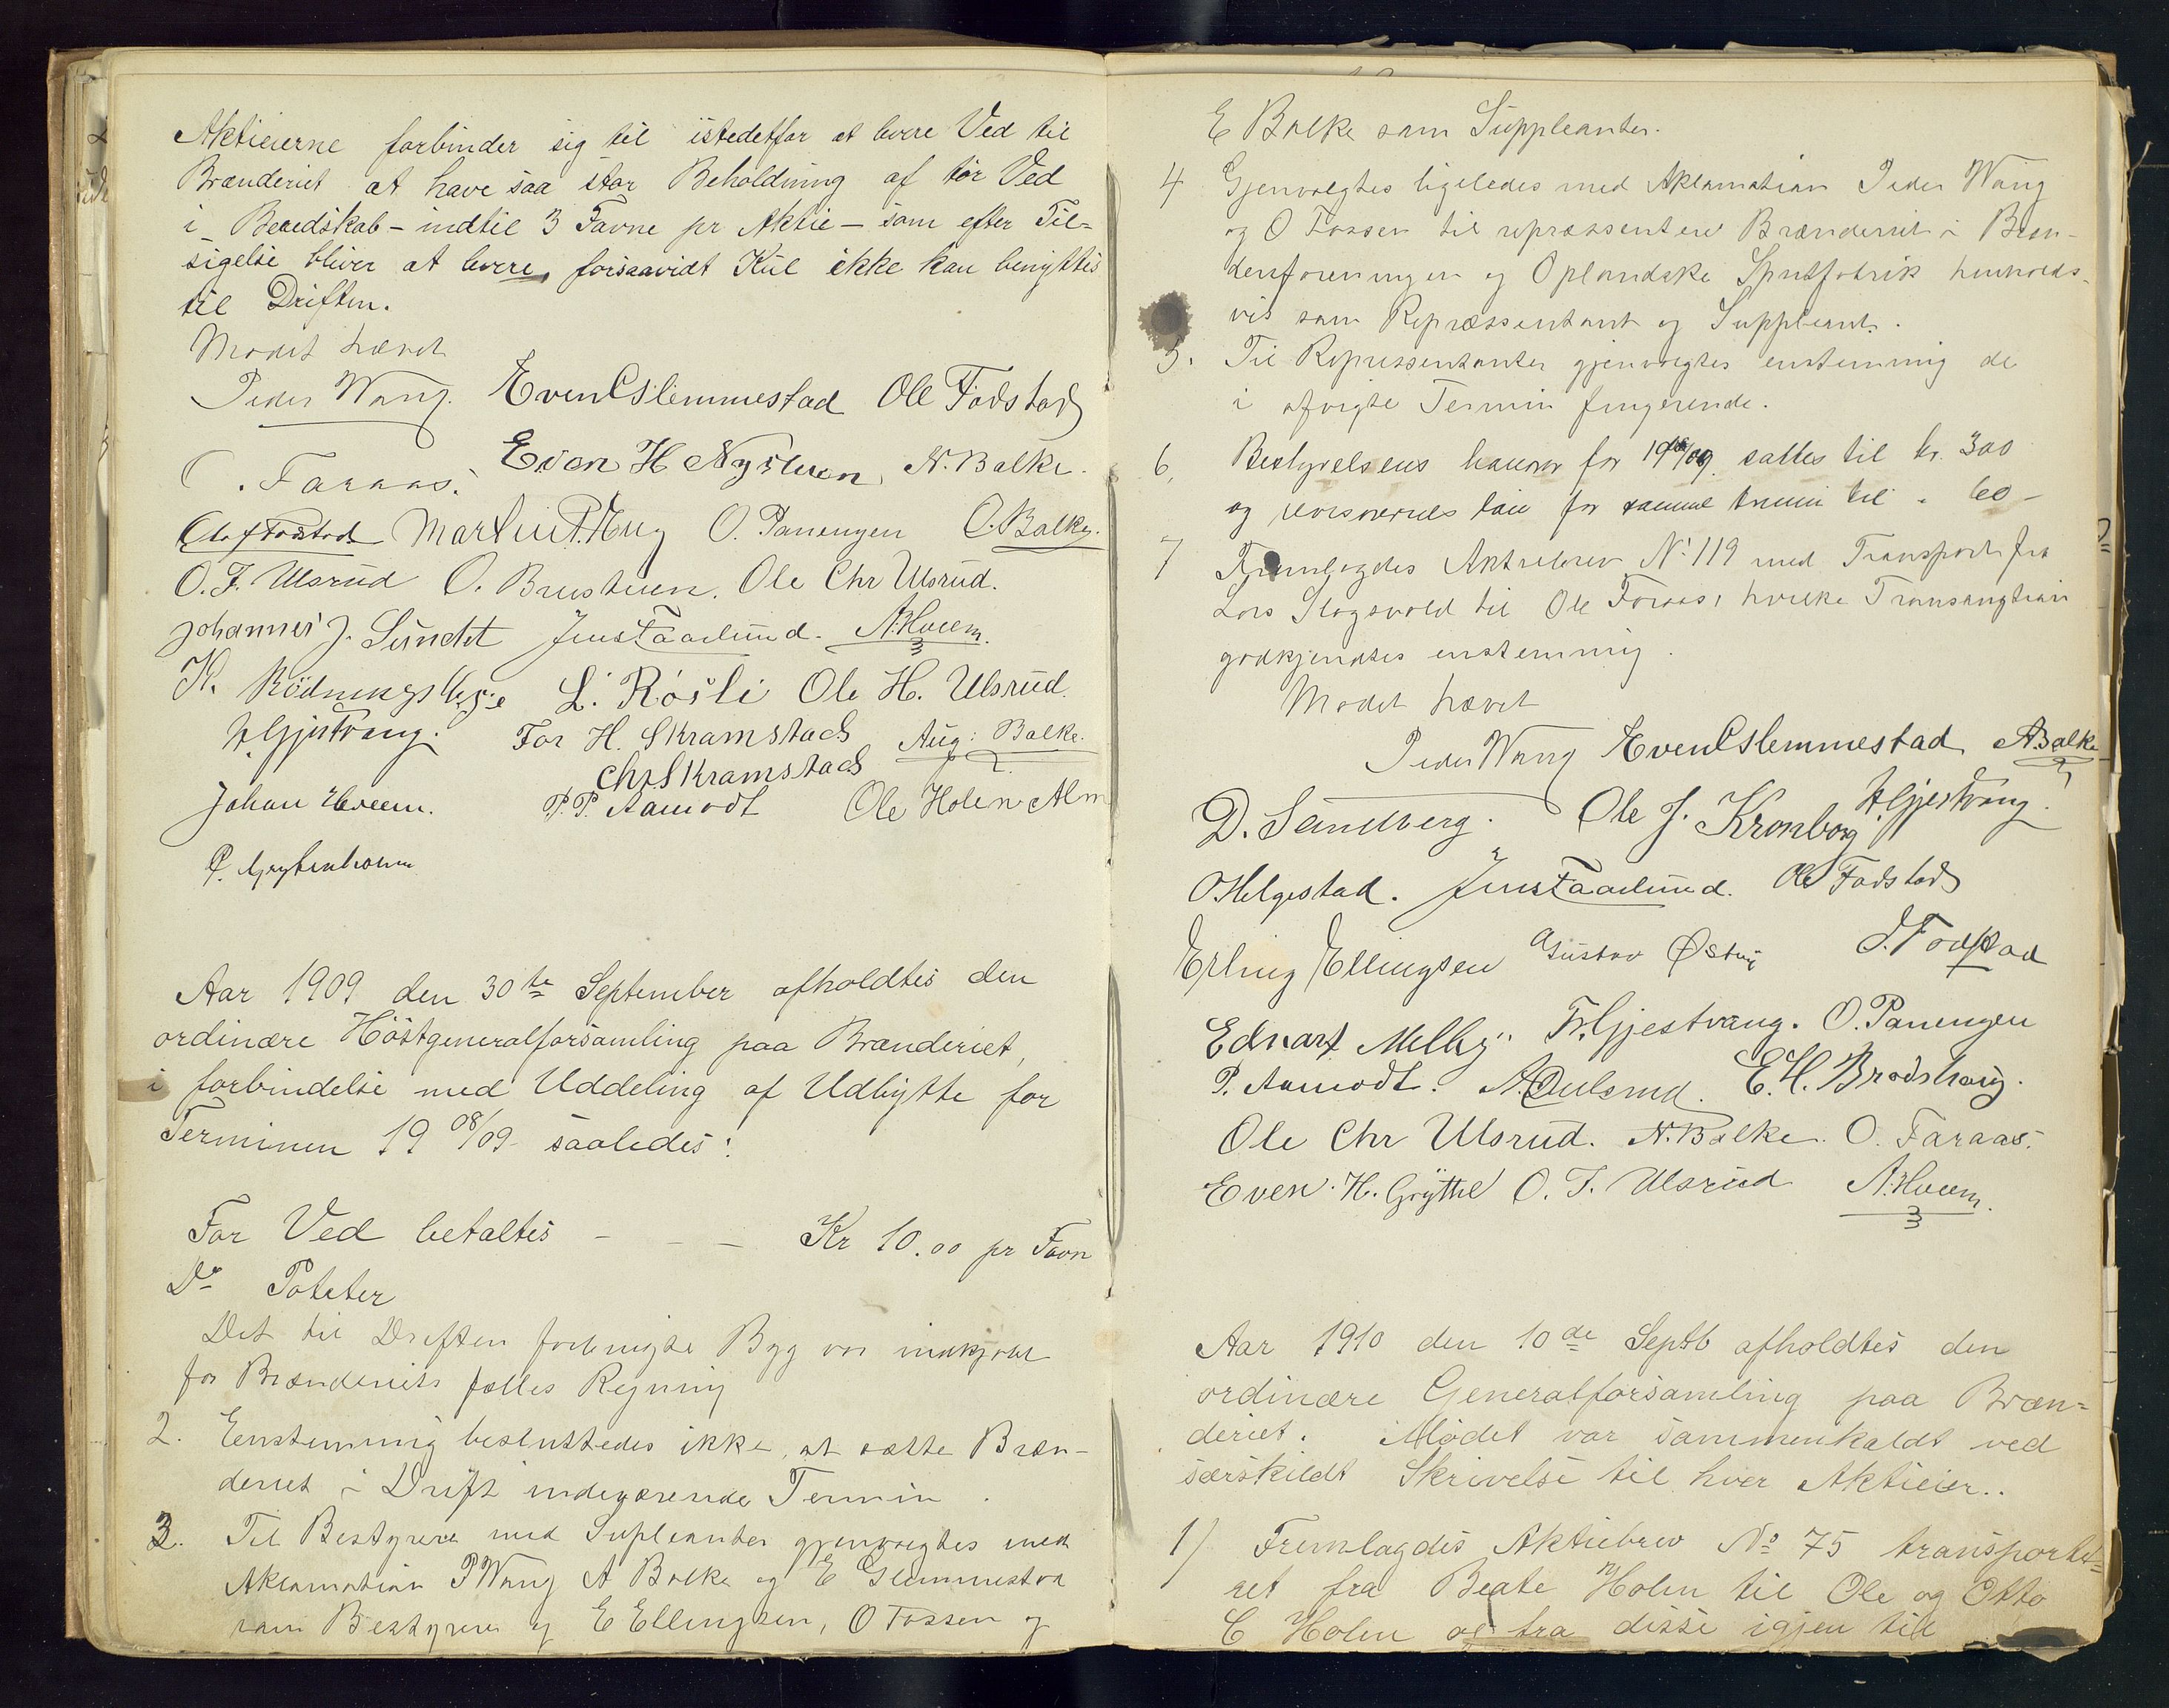 Aktieierne forbinder sig til istedetfor at levere Ved til
Brænderiet at have saa stor Beholdning af tør Ved
i Beredskab – indtil 3 Favne pr Aktie – som efter Til=
sigelse bliver at levere, forsaavidt Kul ikke kan benyttes
til Driften.
Mødet hævet
Peder Wang. Even C Slemmestad Ole Fodstad
O. Faraas. Even H Nysteuen, N. Balke.
Martin P. Hug O. Panengen O. Balke.
O. F. Ulsrud O. Brusteuen. Ole Chr Ulsrud.
Johannes J. Sundet Jens Faarlund. A. Hveem.
K. Rödningsberge L. Røsli Ole H. Ulsrud.
H. Gjestvang. For H. Skramstad Aug: Balke.
Chr Skramstad
Johan Hveem. P. P. Aamodt Ole Holen Alm
Aar 1909 den 30te September afholdtes den
ordinære Höstgeneralforsamling paa Brænderiet,
i forbindelse med Uddeling af Udbytte for
Terminen 19 08/09 saaledes:
For Ved betaltes – – – Kr 10.00 pr Favn
Do Poteter
Det til Driften fornigte Byg var indkjøbt
for Brænderiets fælles Regning
2. Eenstemmig besluttedes ikke at sætte Bræn-
deriet i Drift indeværende Termin.
3. Til Bestyrere med Supleanter gjenvalgtes med
Aklamation P Wang A Balke og E Slemmestad
som Bestyrere og E Ellingsen, O Fossen og
E Balke som Suppleanter.
4 Gjenvalgtes ligeledes med Aklamation Peder Wang
og O Fossen til repræssentere Brænderiet i Bræn-
deriforeningen og Oplandske Spritfabrik henholds-
vis som Repræssentant og Suppleant.
5. Til Repressentanter gjenvalgtes enstemmig de
i afvigte Termin fungerende.
6. Bestyrelsens honorar for 1908/09 sattes til kr. 300
og revisorernes løn for samme termin til " 60 –
7 Fremlagdes Aktiebrev No 119 med Transport fra
Lars Slagsvold til Ole Faraas, hvilke Transangtion
godkjendtes enstemmig.
Mødet hævet
Peder Wang Even C Slemmestad A Balke
D. Sandberg. Ole J. Kronborg H. Gjestvang.
O Helgestad. Jens Faarlund. Ole Fodstad
Erling Ellingsen Gustav Østvig J. Fodstad
Edvart Melby. Fr. Gjestvang. O. Panengen
P. Aamodt. A. O Ulsrud. E. H. Brodshaug.
Ole Chr Ulsrud. N. Balke. O. Faraas.
Even H. Grÿthe O. F. Ulsrud A. Hveem.
Aar 1910 den 10de Septb afholdtes den
ordinære Generalforsamling paa Bræn=
deriet. Mödet var sammenkaldt ved
særskildt Skrivelse til hver Aktieier..
1) Fremlagdes Aktiebrev No 75 transporte=
ret fra Beate Holen til Ole og Otto
C Holen og fra disse igjen til